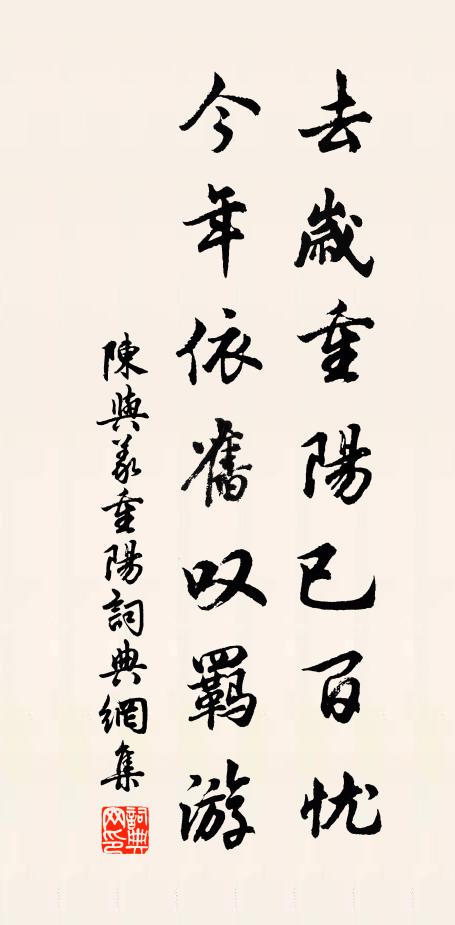 去歲重陽已百忧
今年依舊叹羈游
陳與義重陽詞典網集
詞典网印